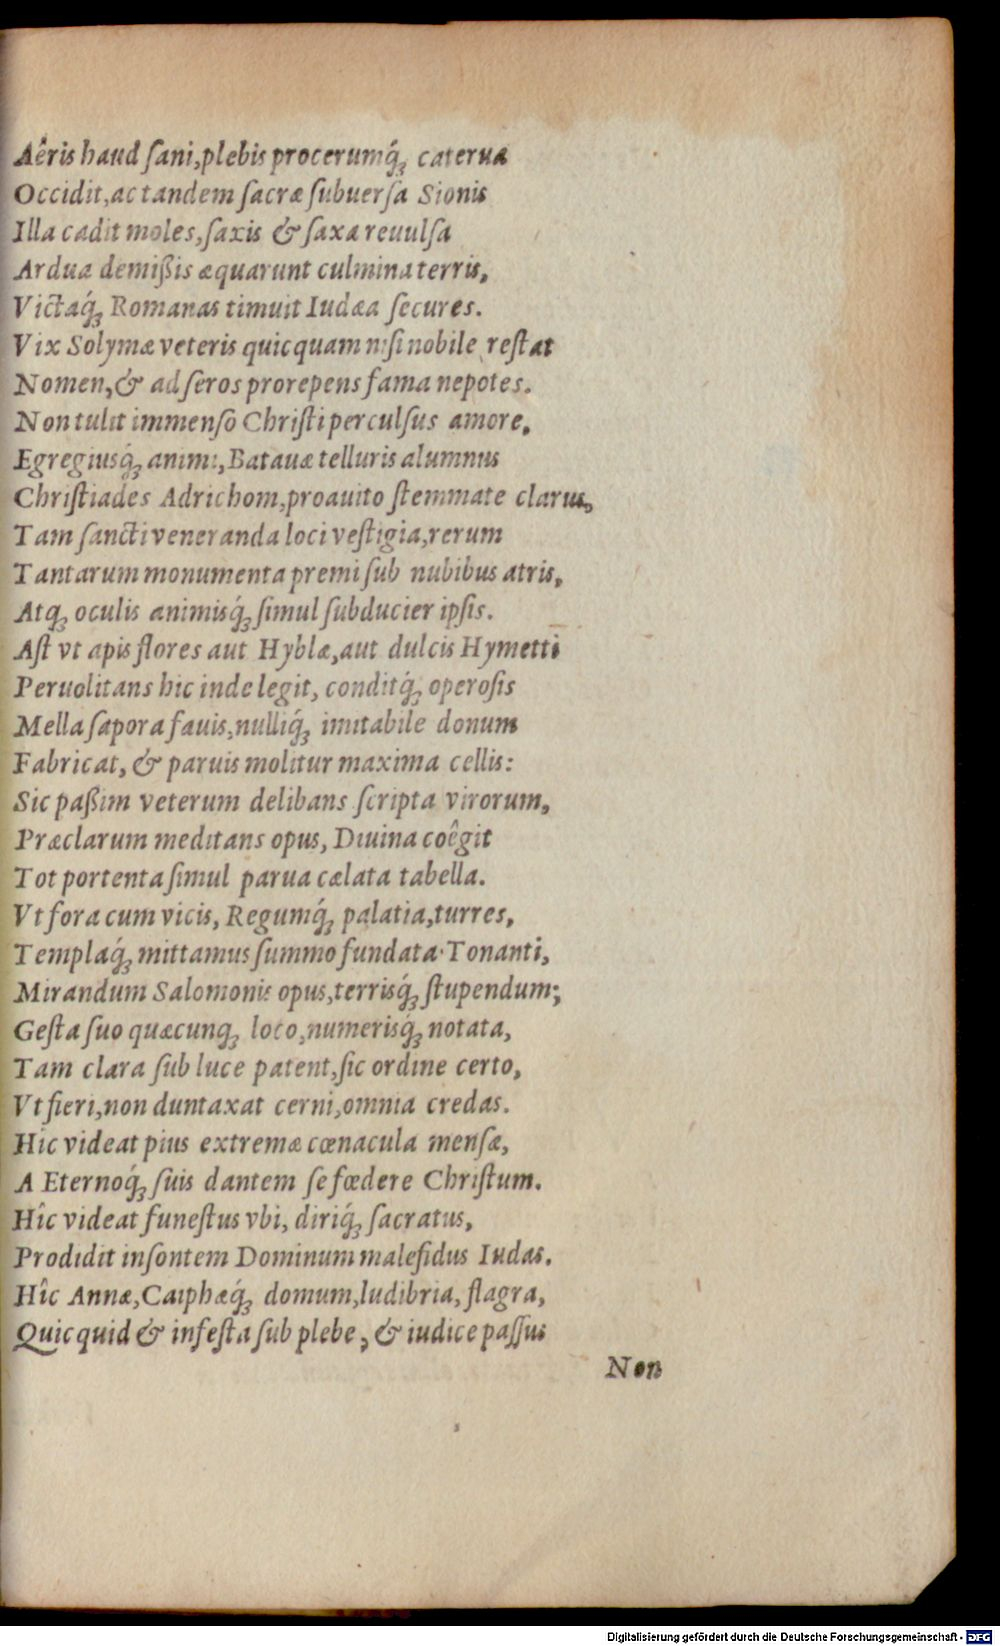 Aêris haud ſani,plebis procerumq́ꝫ caterua
Occidit,ac tandem ſacræ ſubuerſa Sionis
Illa cadit moles,ſaxis & ſaxa reuulſa
Ardua demißis æquarunt culmina terris,
Victaq́ꝫ Romanas timuit Iudæa ſecures.
Vix Solymæ veteris quicquam niſi nobile reſtat
Nomen,& ad ſeros prorepens fama nepotes.
Non tulit immenſo Chriſti perculſus amore,
Egregiusq́ꝫ animi,Batauæ telluris alumnus
Chriſtiades Adrichom,proauito ſtemmate clarus,
Tam ſancti veneranda loci veſtigia,rerum
Tantarum monumenta premi ſub nubibus atris,
Atqꝫ oculis animisq́ꝫ ſimul ſubducier ipſis.
Aſt vt apis flores aut Hyblæ,aut dulcis Hymetti
Peruolitans hic inde legit, conditq́ꝫ operoſis
Mella ſapora fauis,nulliq́ꝫ imitabile donum
Fabricat, & paruis molitur maxima cellis:
Sic paßim veterum delibans ſcripta virorum,
Præclarum meditans opus, Diuina coêgit
Tot portenta ſimul parua cælata tabella.
Vt fora cum vicis, Regumq́ꝫ palatia,turres,
Templaq́ꝫ mittamus ſummo fundata Tonanti,
Mirandum Salomonis opus,terrisq́ꝫ ſtupendum;
Geſta ſuo quæcunqꝫ loco,numerisq́ꝫ notata,
Tam clara ſub luce patent,ſic ordine certo,
Vt fieri,non duntaxat cerni,omnia credas.
Hic videat pius extremæ cœnacula menſæ,
A Eternoq́ꝫ ſuis dantem ſe fœdere Chriſtum.
Hîc videat funeſtus vbi, diriq́ꝫ ſacratus,
Prodidit inſontem Dominum malefidus Iudas.
Hîc Annæ,Caiphæq́ꝫ domum,ludibria, flagra,
Quicquid & infeſta ſub plebe, & iudice paſſus
Non
Digitalisierung gefördert durch die Deutsche Forschungsgemeinschaft - DFG